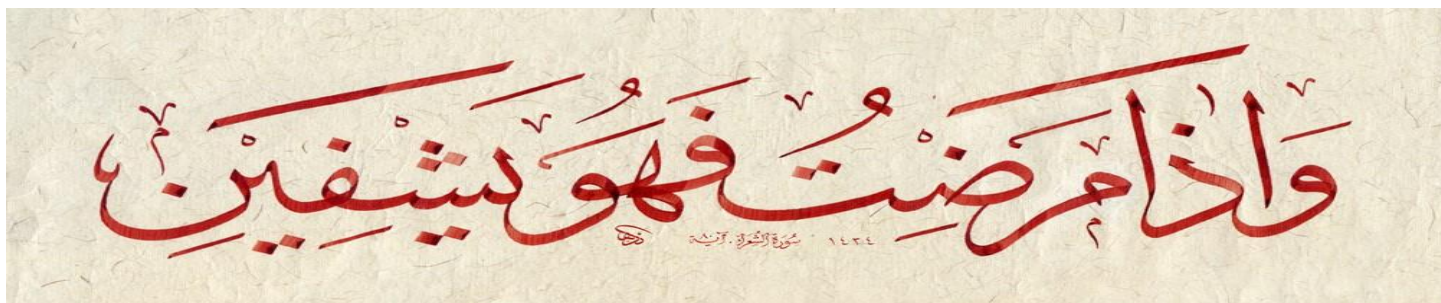 وَاِذَا مَرِضْتُ فَهُوَ يَشْفِينِ
١٤٣٤ سُورَةُ الشُّعَرَاءِ. آيَة ٨٠